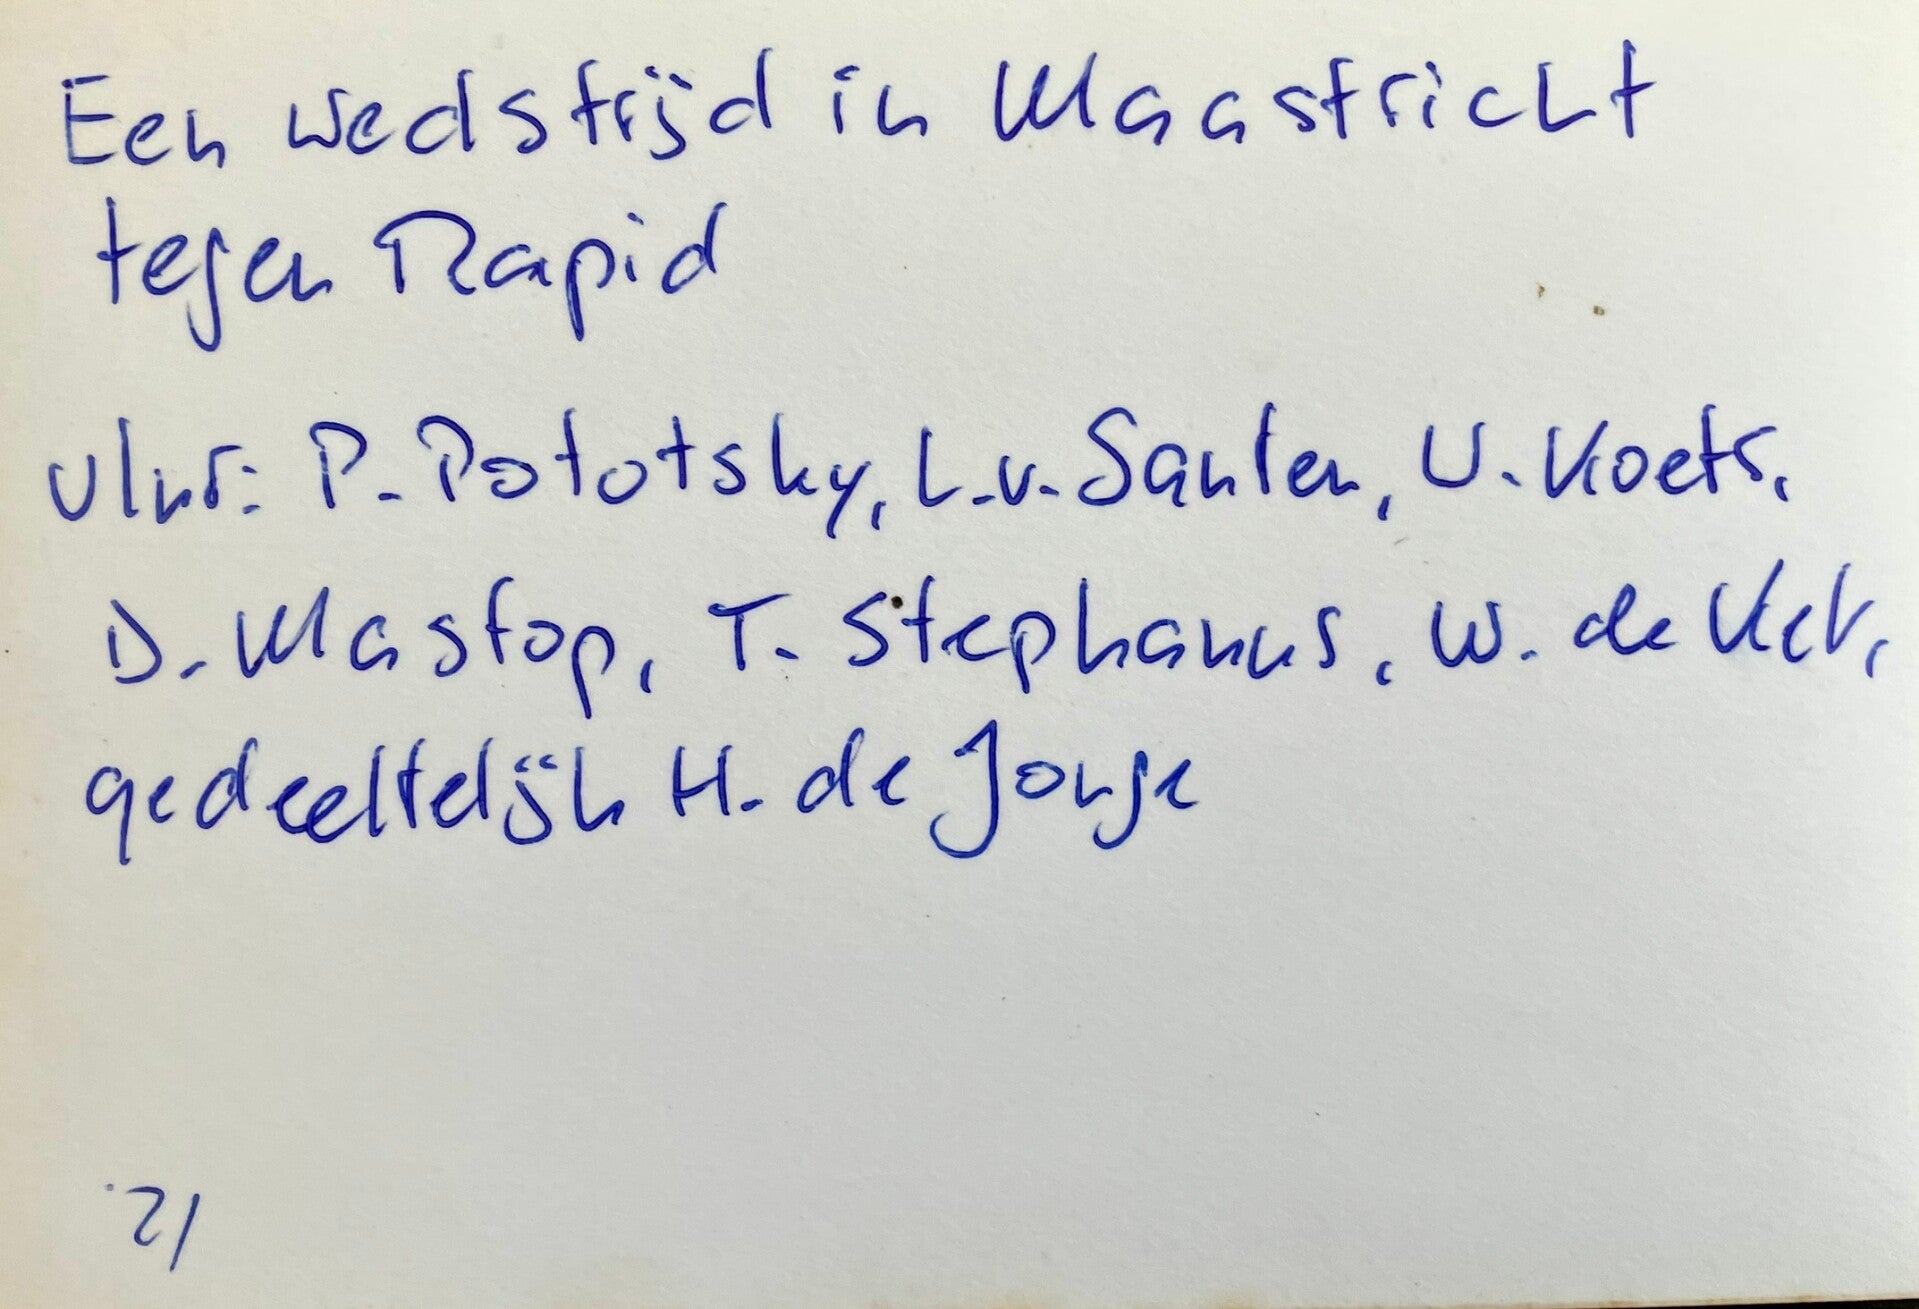 Een wedstrijd in Maastricht
tegen Rapid
vlnr: P. Pototsky, L.v. Santen, U. Koets,
D. Mastop, T. Stephanus, W. de
gedeeltelijk H. de Jonge
21